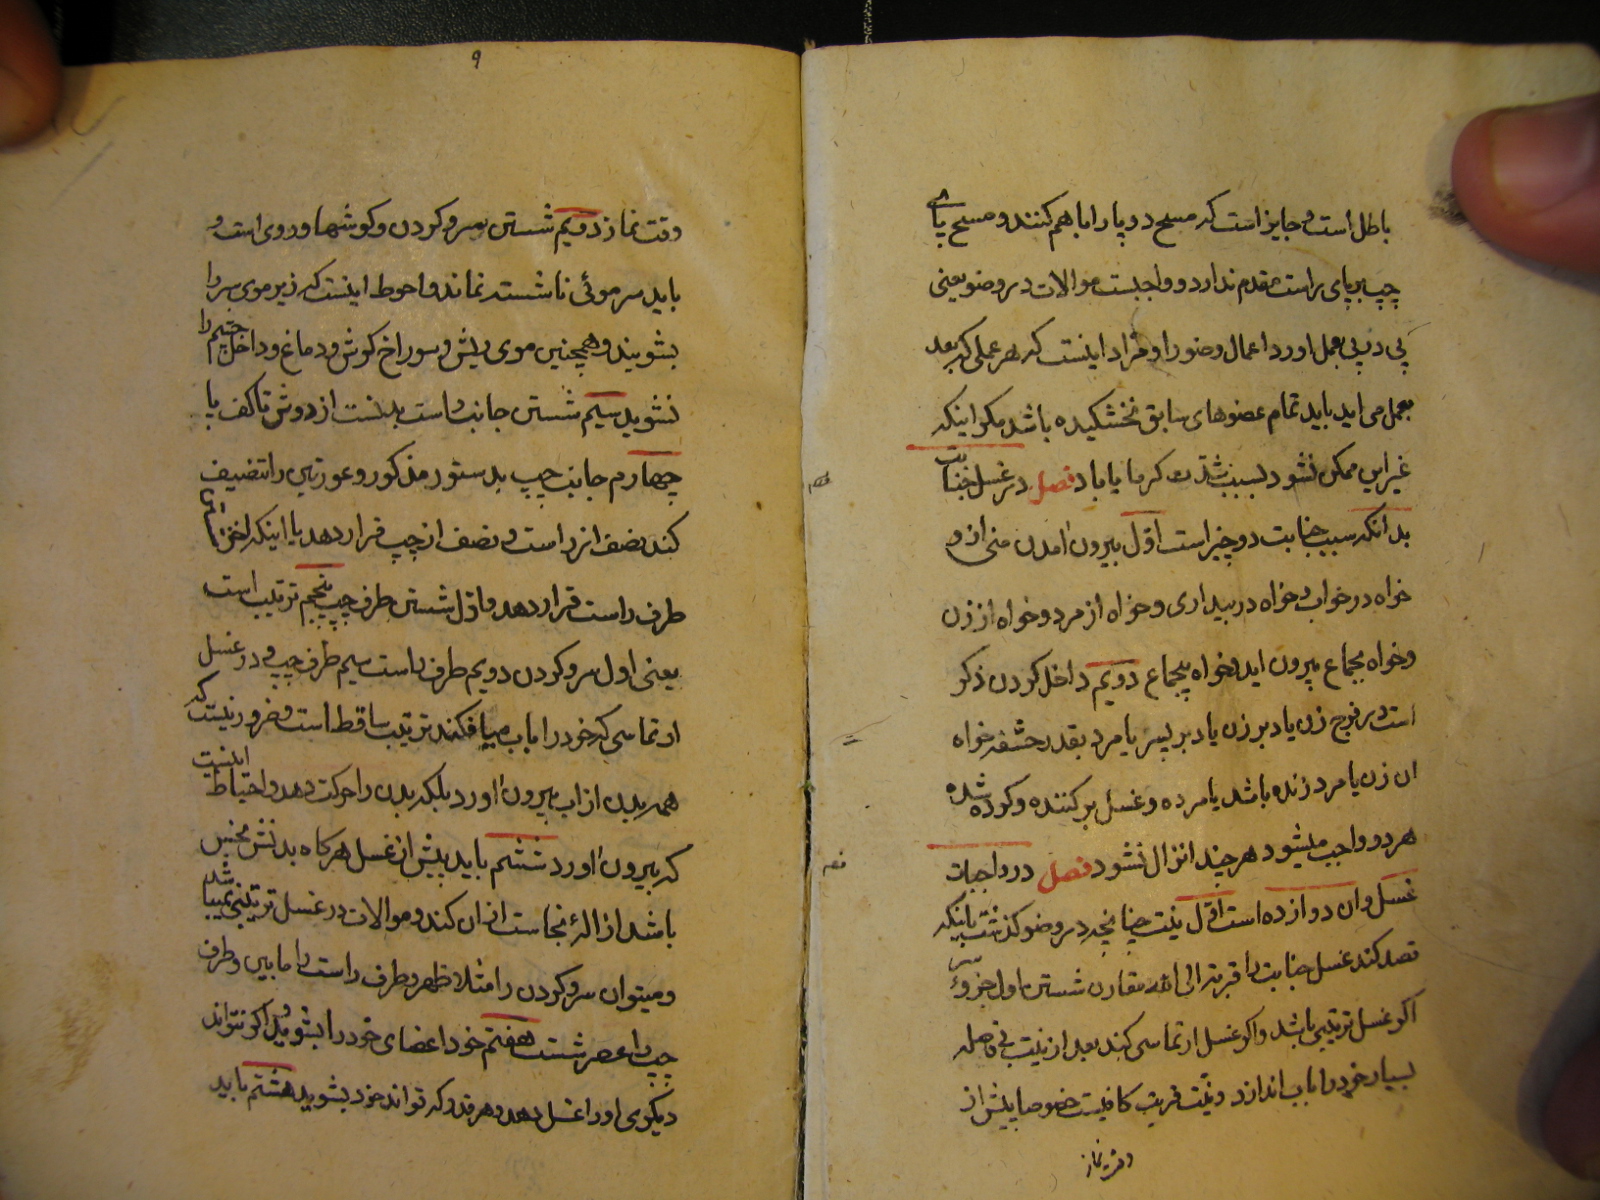 باطل است و جایز است که مسح دو پا را با هم کنند و مسح پای
چپ بر پای راست مقدم ندارد و واجبست موالات در وضو یعنی
پی در پی بعمل اورد اعمال وضو را و مراد اینست که هر عملی که بعد
بعمل می اید باید تمام عضوهای سابق نخشکیده باشد مکر اینکه
غیر این ممکن نشود بسبب شدت کرما یا باد فصل در غسل جنابت
بدانکه سبب جنابت دو چیز است اول بیرون امدن منی از و
خواه در خواب و خواه در بیداری و خواه از مرد و خواه از زن
و خواه بجماع بیرون اید و خواه بیجماع دویم داخل کردن ذکر
است در فرج زن یا دبر زن یا دبر پسر یا مرد بقدر حشفه خواه
ان زن یا مرد زنده باشد یا مرده و غسل بر کننده و کرده شده
هر دو واجب میشود هر چند انزال نشود فصل در واجبات
غسل و ان دوازده است اول نیت چنانچه در وضو کذشت باینکه
قصد کند غسل جنابت را قربة الی الله مقارن شستن اول جزوی سر
اکر غسل ترتیبی باشد و اکر غسل ارتماسی کند بعد از نیت بی فاصله
بسیار خود را باب اندازد و نیت قربت کافیست خصوصا پیش از
وقت نماز
۹
وقت نماز دویم شستن سر و کردن و کوشها و روی است و
باید سر موئی ناشسته نماند و احوط اینست که زیر موی سر را
بشویند و همچنین موی ریش و سوراخ کوش و دماغ و داخل چشم را
نشوید سیم شستن جانب راست بدنست از دوش تا کف پا
چهارم جانب چپ بدستور مذکور و عورتین را تنصیف
کند نصف از راست و نصف از چپ قرار دهد یا اینکه اخر
طرف راست قرار دهد و اول شستن طرف چپ پنجم ترتیب است
یعنی اول سر و کردن دویم طرف راست سیم طرف چپ و در غسل
ارتماسی که خود را باب میافکند ترتیب ساقط است و ضرور نیست که
همه بدن از اب بیرون اورد بلکه بدن را حرکت دهد و احتیاط اینست
که بیرون اورد ششم باید پیش از غسل هر کاه بدنش نجس
باشد ازالهٔ نجاست از ان کند و موالات در غسل ترتیبی نمیباشد
و میتوان سر و کردن را مثلا ظهر و طرف راست را مابین و طرف
چپ را عصر شست هفتم خود اعضای خود را بشوید و اکر نتواند
دیکری او را غسل دهد و هر قدر که تواند خود بشوید هشتم باید